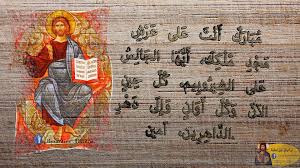 مُبَارَكٌ أَنْتَ عَلَى عَرْشِ
مَجْدِ مُلْكِكَ، أَيُّهَا الجَالِسُ
عَلَى الشِّيرُوبِيمِ، كُلَّ حِينٍ
الآنَ وَكُلَّ أَوَانٍ وَإِلَى دَهْرِ
الدَّاهِرِينَ، آمِين.